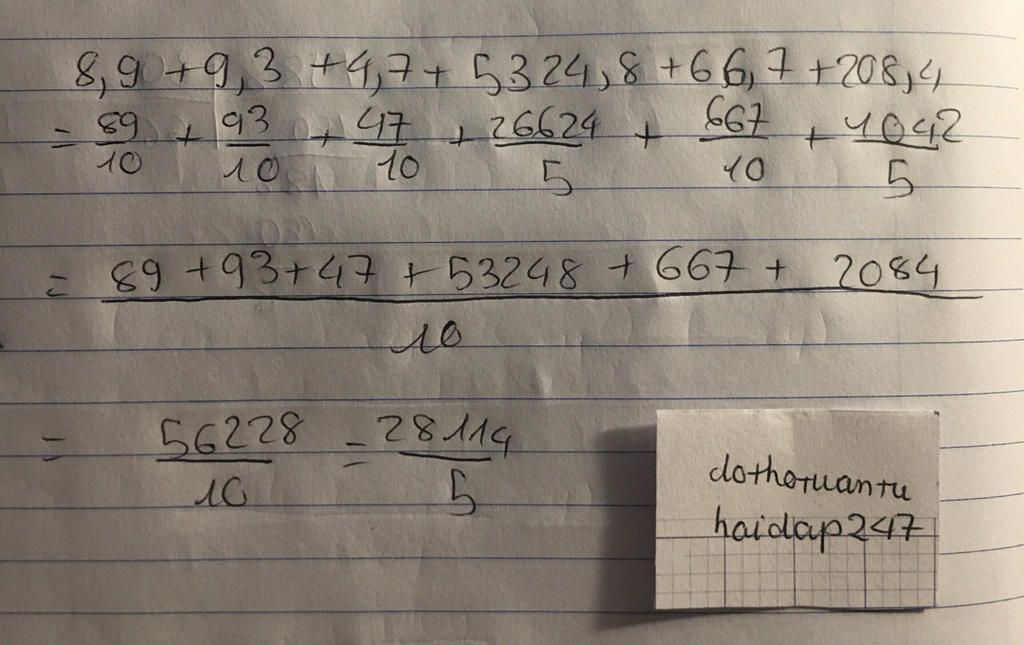 8,9 + 9,3 + 4,7 + 5324,8 + 66,7 + 208,4
= 89/10 + 93/10 + 47/10 + 26624/5 + 667/10 + 1042/5
= (89 + 93 + 47 + 53248 + 667 + 2084)/10
= 56228/10 = 28114/5
dothotuantu
haidap247